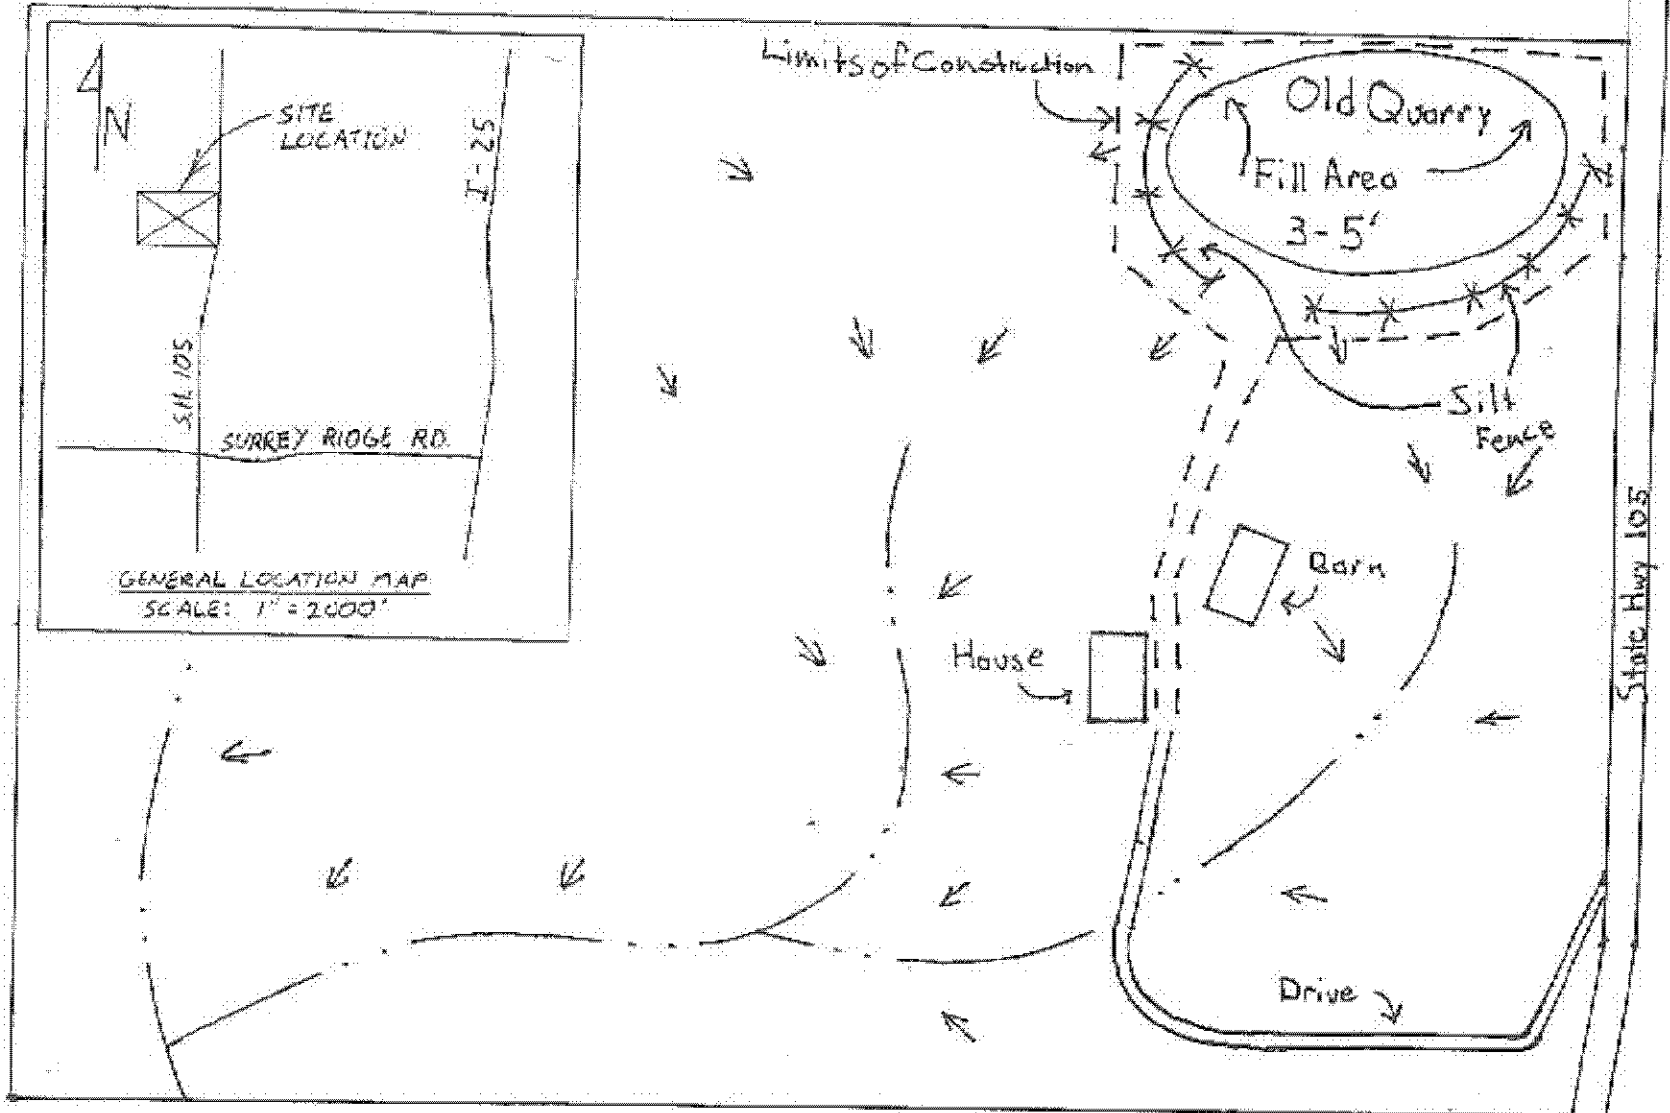 N
SITE
LOCATION
I-25
S.H. 105
SURREY RIDGE RD.
GENERAL LOCATION MAP
SCALE: 1" = 2000'
Limits of Construction
Old Quarry
Fill Area
3-5'
Silt
Fence
Barn
House
State Hwy 105
Drive